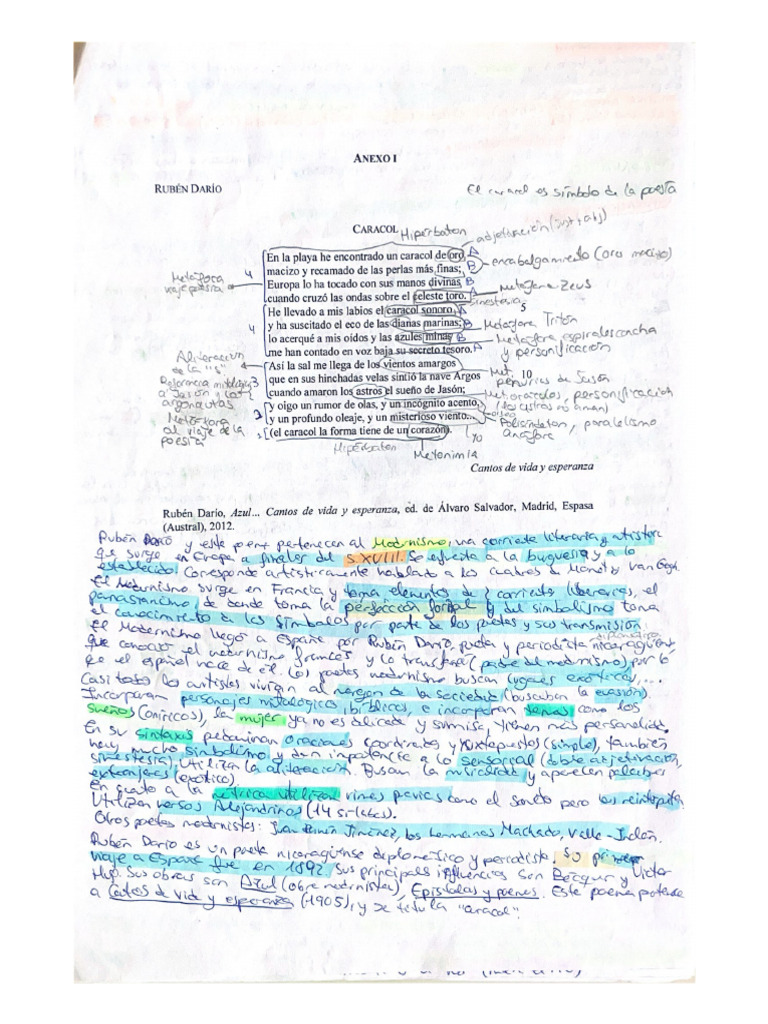 ANEXO I
RUBÉN DARÍO
El caracol es símbolo de la poesía
CARACOL
Hipérbaton
adjetivación (sust + adj)
En la playa he encontrado un caracol de oro A
macizo y recamado de las perlas más finas; B
encabalgamiento (oro macizo)
Europa lo ha tocado con sus manos divinas B
cuando cruzó las ondas sobre el celeste toro. A
4
Metáfora
viaje poesía
Metáfora Zeus
sinestesia
He llevado a mis labios el caracol sonoro, A
5
y ha suscitado el eco de las dianas marinas; B
Metáfora Tritón
lo acerqué a mis oídos y las azules minas B
Metáfora espirales concha
y personificación
me han contado en voz baja su secreto tesoro. A
4
Aliteración
de la "s"
Así la sal me llega de los vientos amargos
Met. 10
penurias de Jasón
que en sus hinchadas velas sintió la nave Argos
cuando amaron los astros el sueño de Jasón;
3
Referencia mitológica
a Jasón y los
argonautas
Metáfora
del viaje de la
poesía
personificación
(los astros no aman)
y oigo un rumor de olas, y un incógnito acento,
y un profundo oleaje, y un misterioso viento...
Polisíndeton, paralelismo
Anáfora
3
(el caracol la forma tiene de un corazón).
Hipérbaton
Metonimia
Cantos de vida y esperanza
Rubén Darío, Azul... Cantos de vida y esperanza, ed. de Álvaro Salvador, Madrid, Espasa
(Austral), 2012.
Rubén Darío y este poema pertenecen al Modernismo, una corriente literaria y artística
que surge en Europa a finales del S.XVIII. Se enfrenta a la burguesía y a lo
establecido. Corresponde artísticamente hablado a los cuadros de Monet y Van Gogh.
El Modernismo surge en Francia y toma elementos de 2 corrientes literarias, el
parnasianismo de donde toma la perfección formal y del simbolismo toma
el conocimiento a los símbolos por parte de los poetas y sus transmisión.
El Modernismo llegó a España por Rubén Darío, poeta y periodista nicaragüense
que conoció el modernismo francés y lo transfirió (padre del modernismo) por lo
que el español nace de él. Los poetas modernismo buscan lugares exóticos,...
Casi todos los artistas vivían al margen de la sociedad (buscaban la evasión).
Incorporan personajes mitológicos, bíblicos, e incorporan temas como los
sueños (oníricos), la mujer ya no es delicada y sumisa, tienen más personalidad.
En su sintaxis predominan oraciones coordinadas y yuxtapuestas (simple), también
hay mucho simbolismo y dan importancia a lo sensorial (doble adjetivación,
sinestesia). Utilizan la aliteración. Buscan la musicalidad y aparecen palabras
extranjeras (exótico).
En cuanto a la métrica utilizan rimas parias como el soneto pero los reinterpreta.
Utilizan versos Alejandrinos (14 sílabas).
Otros poetas modernistas: Juan Ramón Jiménez, los hermanos Machado, Valle-Inclán.
Rubén Darío es un poeta nicaragüense deplomático y periodista. Su primer
viaje a España fue en 1892. Sus principales influencias son Becquer y Victor
Hugo. Sus obras son Azul (obre modernistas), Epístolas y poemas. Este poema pertenece
a Cantos de vida y esperanza (1905), y se titula "Caracol".